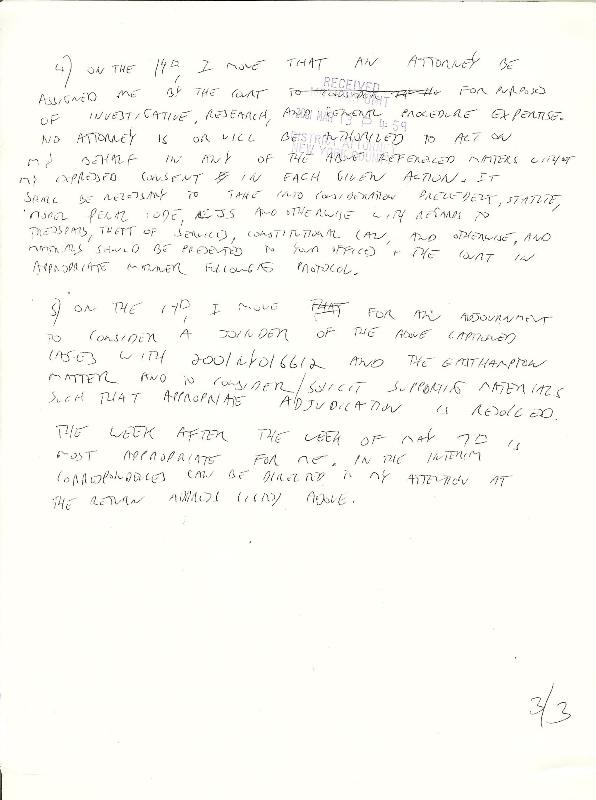 4) ON THE 19TH, I MOVE THAT AN ATTORNEY BE
ASSIGNED ME BY THE COURT TO FOR PURPOSES
OF INVESTIGATIVE, RESEARCH, AND GENERAL PROCEDURE EXPERTISE.
NO ATTORNEY IS OR WILL BE AUTHORIZED TO ACT ON
MY BEHALF IN ANY OF THE ABOVE REFERENCED MATTERS WITHOUT
MY EXPRESSED CONSENT IN EACH GIVEN ACTION. IT
SHALL BE NECESSARY TO TAKE INTO CONSIDERATION PRECEDENT, STATUTE,
MODEL PENAL CODE, AND OTHERWISE WITH REGARDS TO
TRESPASS, THEFT OF SERVICES, CONSTITUTIONAL LAW, AND OTHERWISE, AND
MATERIALS SHOULD BE PRESENTED TO YOUR OFFICES + THE COURT IN
APPROPRIATE MANNER FOLLOWING PROTOCOL.
RECEIVED
DISTRICT ATTORNEY
NEW YORK COUNTY
5) ON THE 19TH, I MOVE THAT FOR AN ADJOURNMENT
TO CONSIDER A JOINDER OF THE ABOVE CAPTIONED
CASES WITH 2001NY016612 AND THE EASTHAMPTON
MATTER AND TO CONSIDER/SOLICIT SUPPORTING MATERIALS
SUCH THAT APPROPRIATE ADJUDICATION IS REDUCED.
THE WEEK AFTER THE WEEK OF MAY 7TH IS
MOST APPROPRIATE FOR ME. IN THE INTERIM
CORRESPONDENCE CAN BE DIRECTED TO MY ATTENTION AT
THE RETURN ADDRESS LISTED ABOVE.
3/3